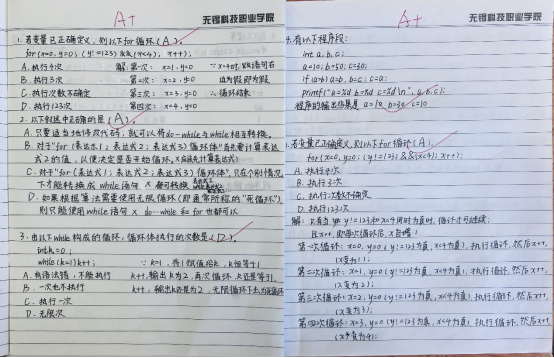 A+
无锡科技职业学院
1.若变量已正确定义,则以下for循环(A)
for(x=0,y=0;(y!=123)&&(x<4);x++);
A.执行4次 解:第一次:x=1,y=0 ∵x=4时,
B.执行3次 第二次:x=2,y=0
C.执行次数不确定 第三次:x=3,y=0 ∴循环结束
D.执行123次 第四次:x=4,y=0
2.以下叙述中正确的是(A)
A.只要适当地修改代码,就可以将do-while与while相互转换。
B.对于"for(表达示1;表达式2;表达式3)循环体"首先要计算表达
式2的值,以便决定是否开始循环。
C.对于"for(表达式1;表达式2;表达式3)循环体",只在个别情况
下才能转换成while语句 ×
D.如果根据算法需要使用无限循环(即通常所称的"死循环")
则只能使用while语句 × do-while和for也都可以
3.由以下while构成的循环,循环体执行的次数是(D)
int k=0;
while(k=1)k++; ∵k=1,
A.有语法错,不能执行 k++,输出k为2,再次循环
B.一次也不执行
C.执行一次
D.无限次
A+
无锡科技职业学院
4.有以下程序段:
int a,b,c;
a=10;b=50;c=30;
if(a>b)a=b,b=c;c=a;
printf("a=%d b=%d c=%d\n",a,b,c);
程序的输出结果是 a=10 b=50 c=10
1.若变量已正确定义,则以下for循环(A)
for(x=0,y=0;(y!=123)&&(x<4);x++);
A.执行4次
B.执行3次
C.执行次数不确定
D.执行123次
解:只有当y!=123和x<4同时为真时,循环才可继续,
且x++,即每次循环后,x自增1
第一次循环:x=0,y=0(y!=123为真,x<4为真),执行循环,然后x++,
(x变为1);
第二次循环:x=1,y=0(y!=123为真,x<4为真),执行循环,然后x++,
(x变为2);
第三次循环:x=2,y=0(y!=123为真,x<4为真),执行循环,然后x++,
(x变为3);
第四次循环:x=3,y=0(y!=123为真,x<4为真),执行循环,然后x++,
(x变为4);